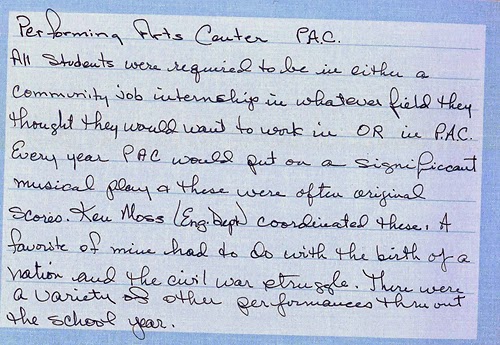 Performing Arts Center P.A.C.
All Students were required to be in either a
community job internship in whatever field they
thought they would want to work in OR in P.A.C.
Every year PAC would put on a significant
musical play & these were often original
scores. Ken Moss (Eng. Dept) coordinated these. A
favorite of mine had to do with the birth of a
nation and the civil war struggle. There were
a variety of other performances thru out
the school year.